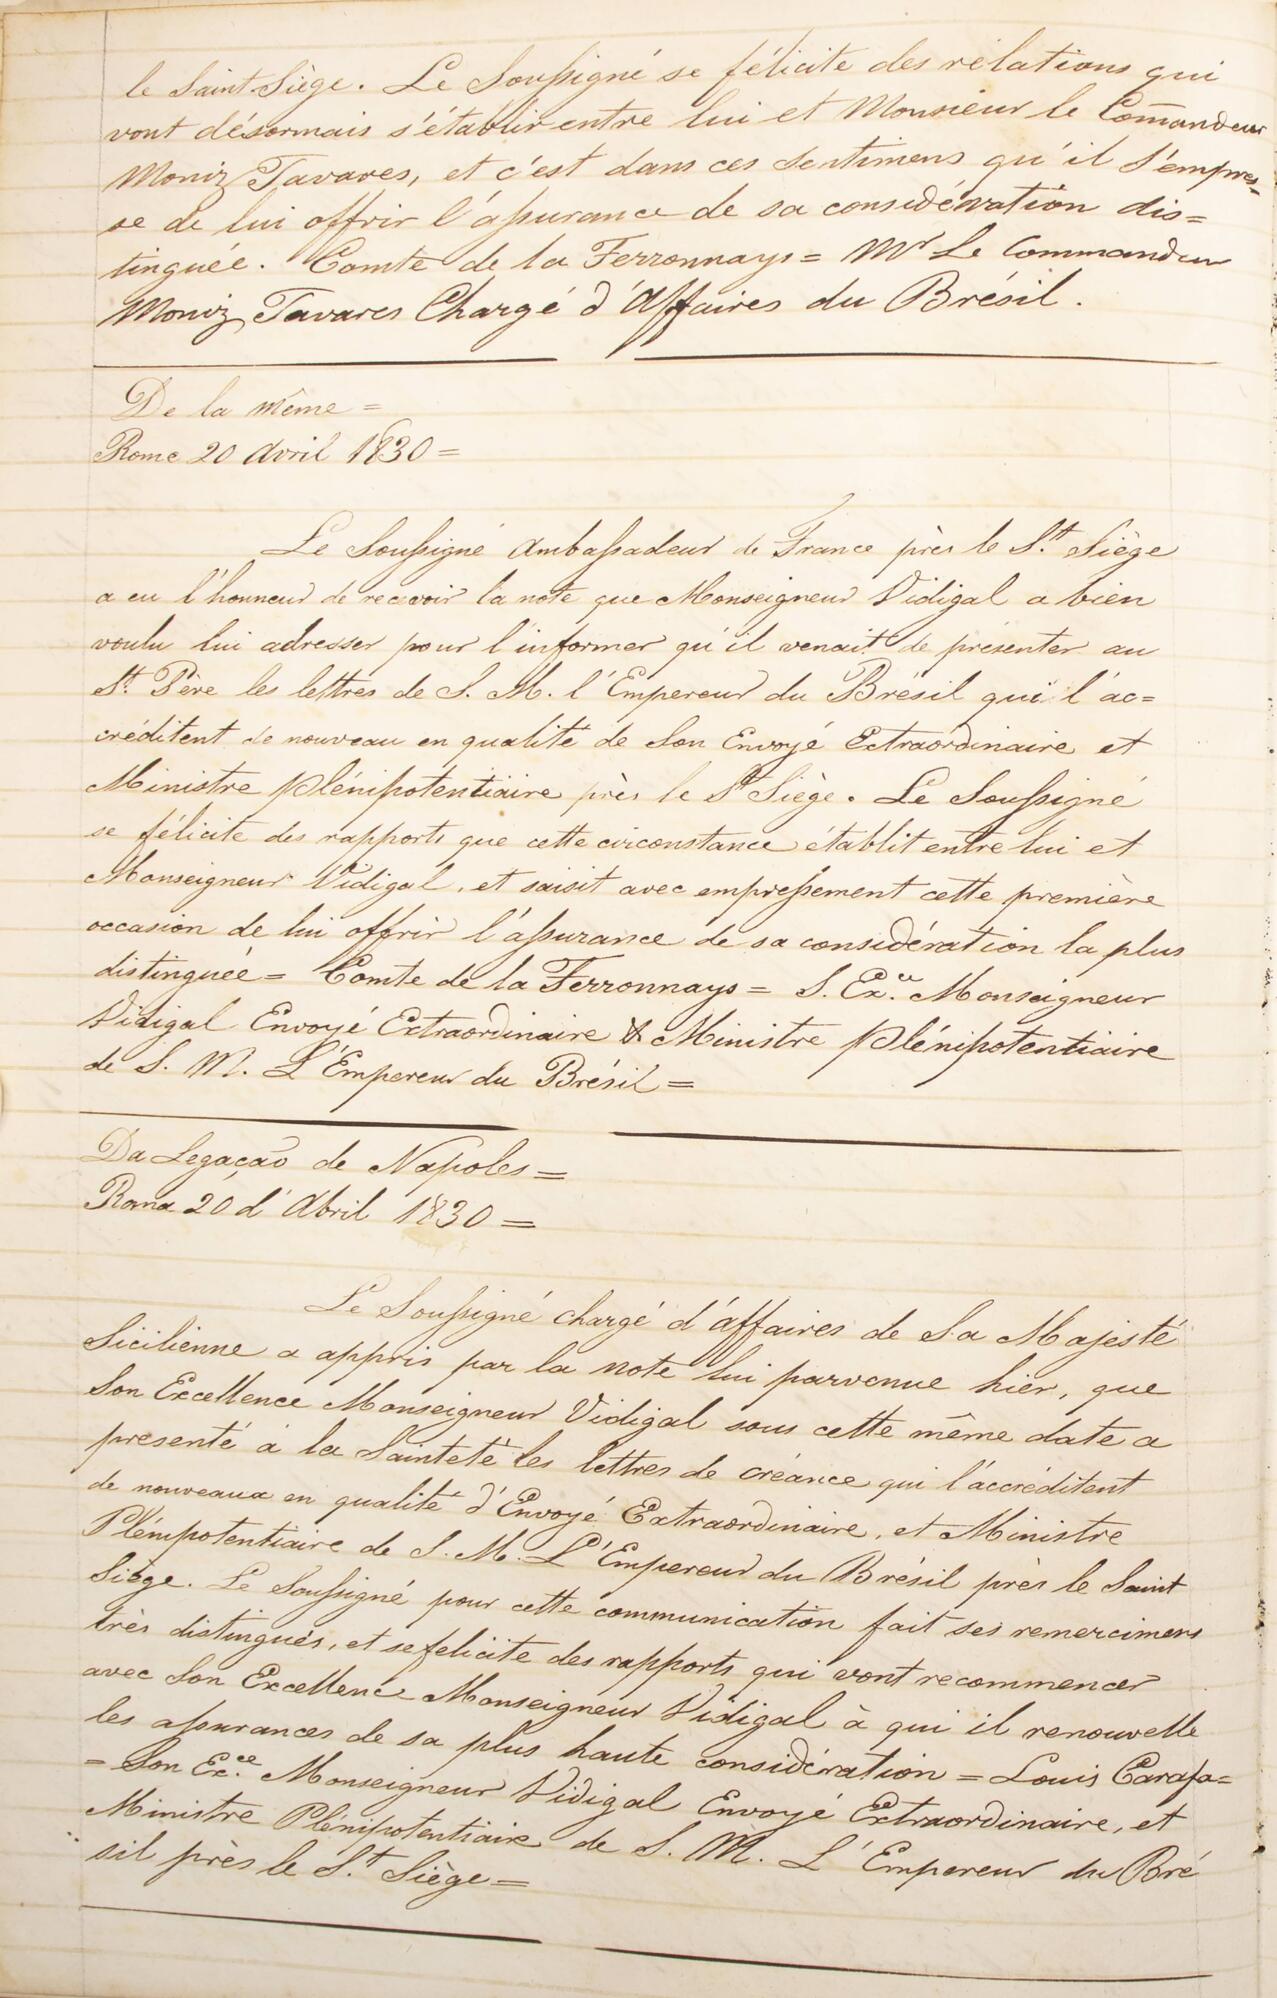 le Saint Siège. Le Soussigné se félicite des rélations qui
vont désormais s'établir entre lui et Monsieur le Com̄andeur
Moniz Tavares, et c'est dans ces sentimens qu'il s'empres=
se de lui offrir l'assurance de sa considération dis=
tinguée. Comte de la Ferronnays = Mr Le Commandeur
Moniz Tavares Chargé d'Affaires du Brésil.
De la même =
Rome 20 Avril 1830 =
Le Soussigné Ambassadeur de France près le St. Siège
a eu l'honneur de recevoir la note que Monseigneur Vidigal a bien
voulu lui adresser pour l'informer qu'il venait de présenter au
St. Père les lettres de S. M. l'Empereur du Brésil qui l'ac=
créditent de nouveau en qualité de Son Envoyé Extraordinaire et
Ministre plénipotentiaire près le St Siège. Le Soussigné
se félicite des rapports que cette circonstance établit entre lui et
Monseigneur Vidigal, et saisit avec empressement cette première
occasion de lui offrir l'assurance de sa considération la plus
distinguée = Comte de la Ferronnays = S. Ex.ce Monseigneur
Vidigal Envoyé Extraordinaire & Ministre plénipotentiaire
de S. M. L'Empereur du Brésil =
Da Legação de Napoles =
Roma 20 d'Abril 1830 =
Le Soussigné chargé d'affaires de Sa Majesté
Sicilienne a appris par la note lui parvenue hier, que
Son Excellence Monseigneur Vidigal sous cette même date a
presenté à la Sainteté les lettres de créance qui l'accréditent
de nouveaux en qualité d'Envoyé Extraordinaire, et Ministre
Plénipotentiaire de S. M. L'Empereur du Brésil près le Saint
Siège. Le Soussigné pour cette communication fait ses remercimens
très distingués, et se felicite des rapports qui vont recommencer
avec Son Excellence Monseigneur Vidigal à qui il renouvelle
les assurances de sa plus haute considération = Louis Carafa =
= Son Ex.ce Monseigneur Vidigal Envoyé Extraordinaire, et
Ministre Plénipotentiaire de S. M. L'Empereur du Bré
sil près le S.t Siège =